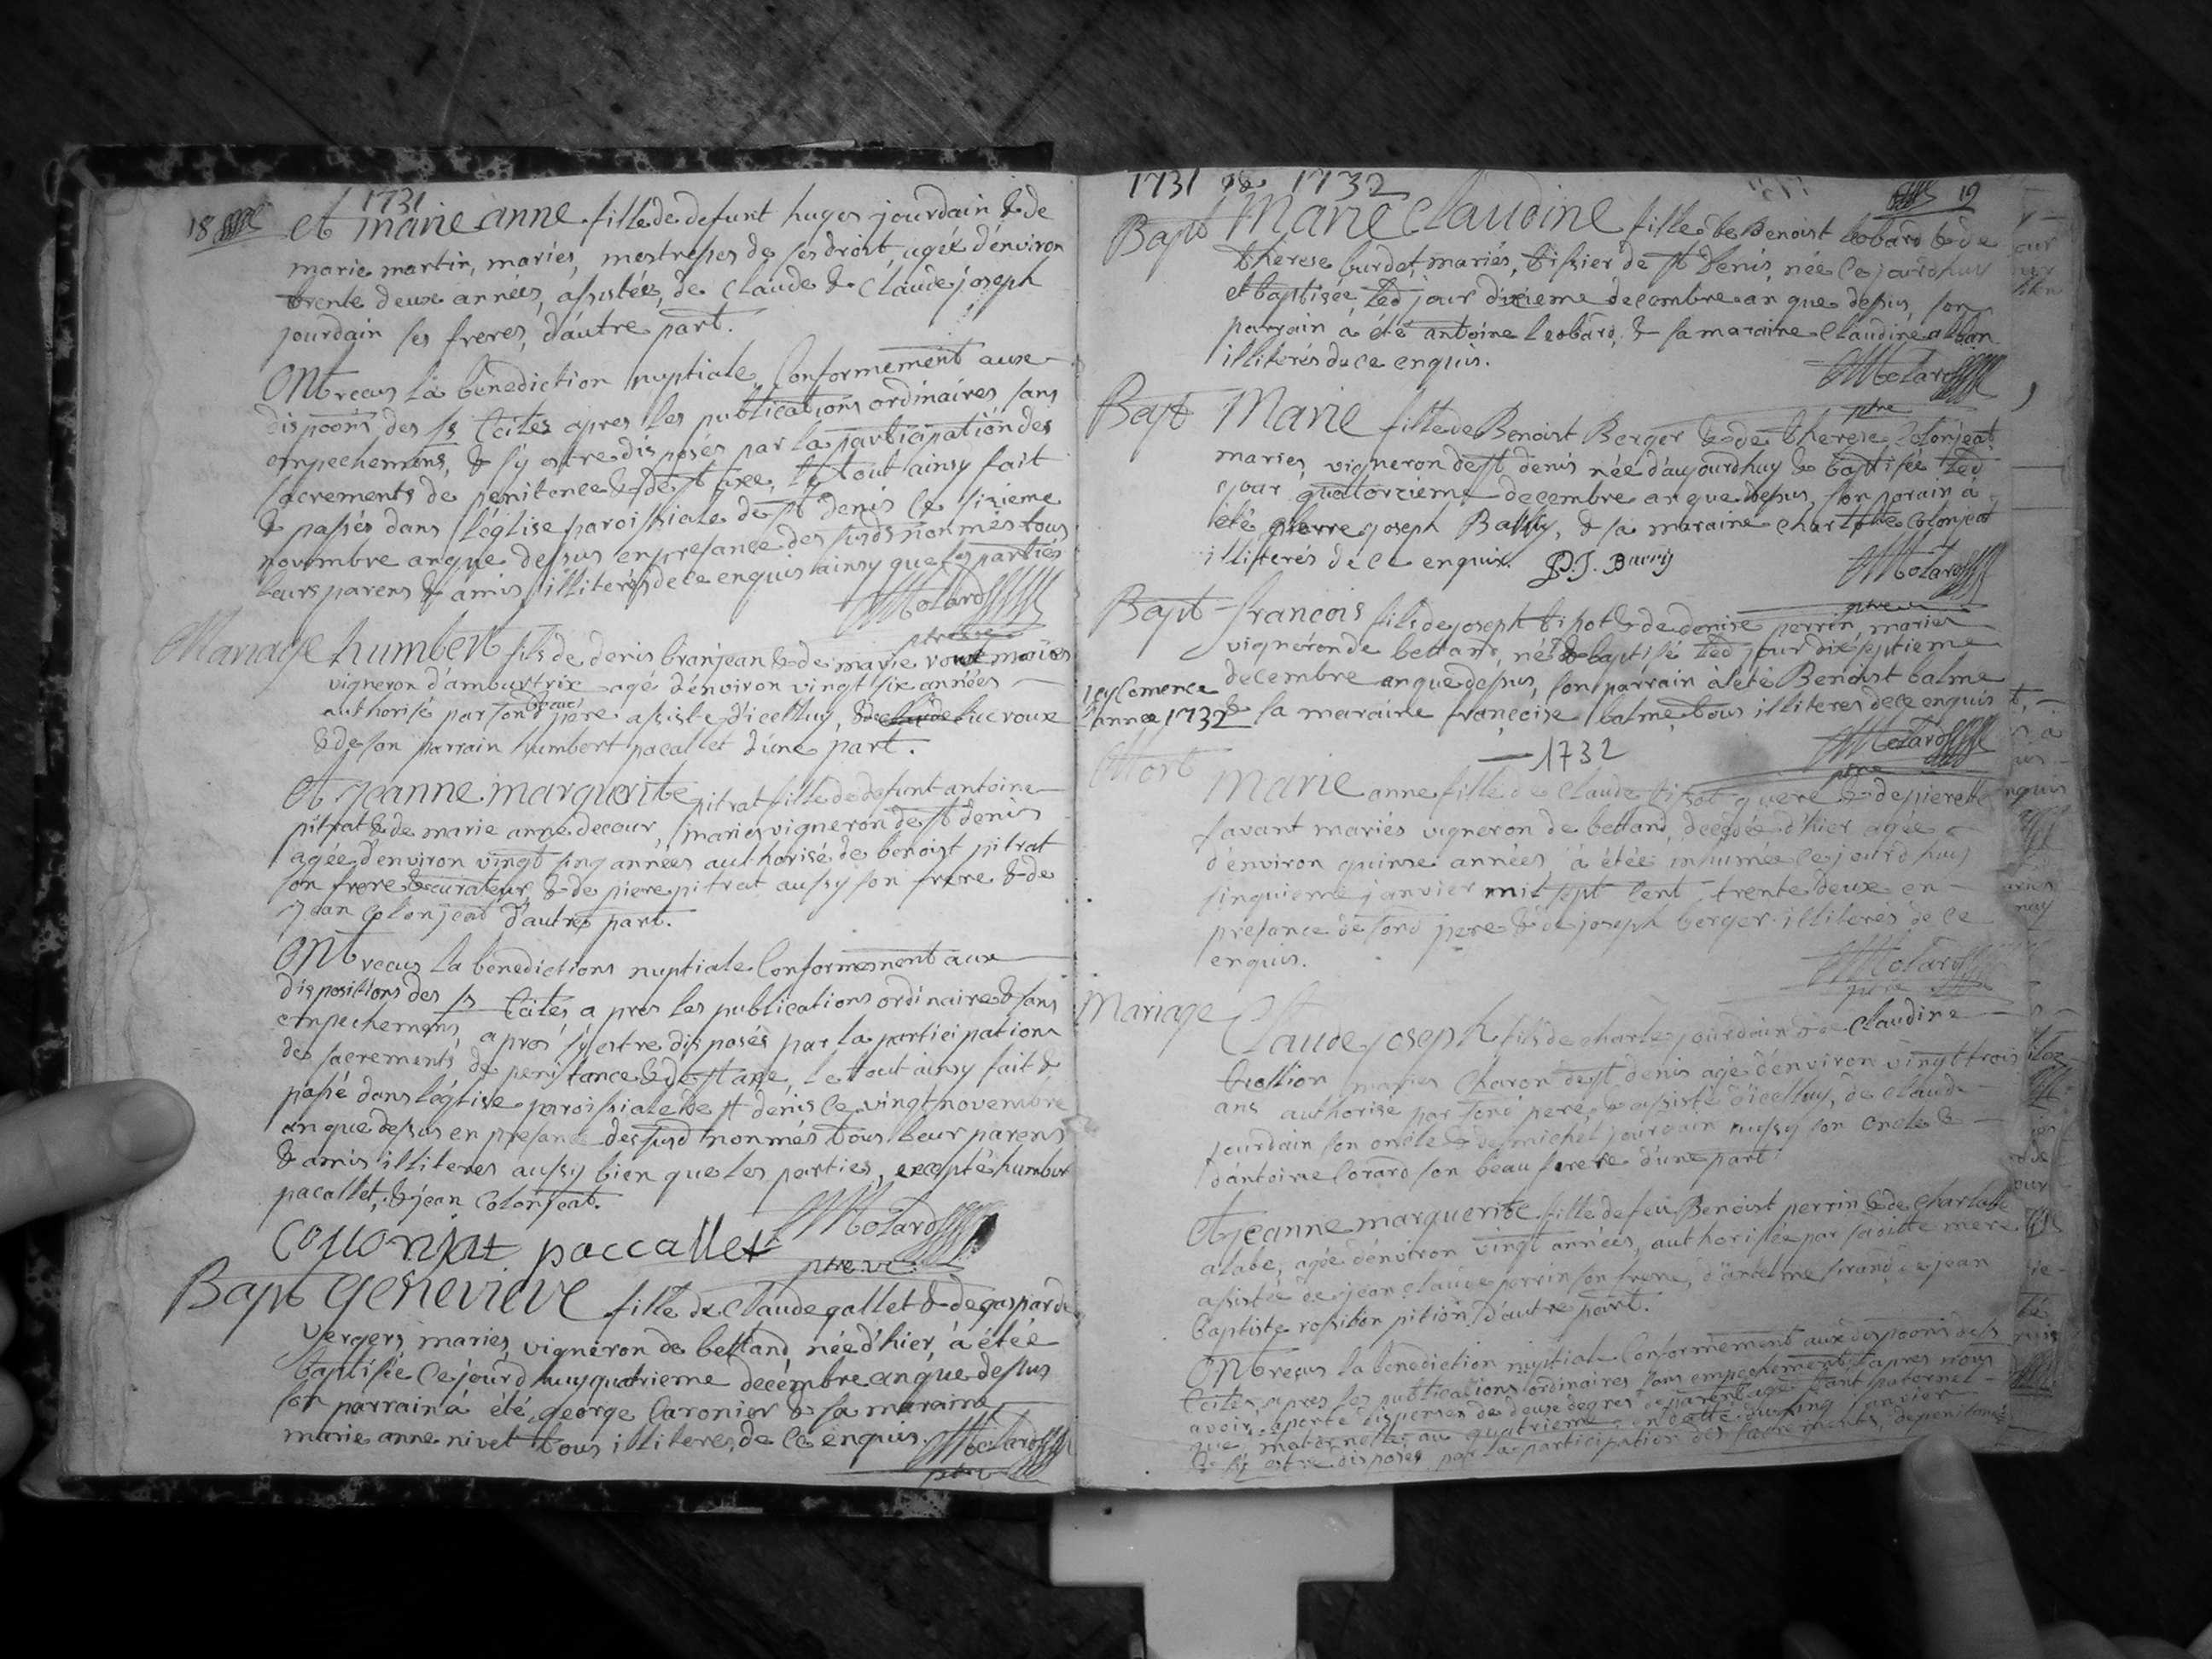 1731
18
et marie anne fille de defunt hugos jourdain & de
marie martin, mariés, mestresses de ses droit, agée d'environ
trente deux années, assistée, de Claude & Claude joseph
jourdain ses freres, d'autre part.
ONt recus la benediction nuptiale Conformement aux
dispoons des ss Cciles apres les publications ordinaires sans
empechemens, & s'y estre disposés par la participation des
sacrements de penitence & de st axe, le tout ainsy fait
& passés dans l'église paroissiale de st denis ce sixieme
novembre anque dessus enpresance des susds nonmés tous
leurs parens & amis illiterés de ce enquis ainsy que les parties
Molard
ptre vic
Mariage humbert fils de denis branjean & de marie
vigneron d'ambutrix agé d'environ vingt six années
authorisé par sond pere assisté d'icelluy, & de luc roux
& de son parrain humbert pacallet d'une part.
Et jeanne marguerite pitrat fille de defunt antoine
pitrat & de marie anne decour, mariés vigneron de st denis
agée d'environ vingt sinq années authorisé de benoist pitrat
son frere & curateur, & de piere pitrat aussy son frere & de
jean Colonjeat d'autre part.
ONt recus la benedictions nuptiale Conformement aux
dispositions des ss Cciles a pres les publications ordinaire & sans
empechemens, apres s'y estre disposés par la participations
des sacrements de penitance & de st axe, le tout ainsy fait &
passé dans l'église paroissiale de st denis ce vingt novembre
an que dessus en presance des susd nonmés tous leur parens
& amis illiteres aussy bien que les parties, excepté humbert
pacallet, & jean Colonjeat.
Collonjat paccallet Molard
ptre vic
Bapt Genevieve fille de Claude gallet & de gasparde
vergers, mariés, vigneron de bettand née d'hier, à étée
baptisée ce jourd huy quatrieme decembre an que dessus
son parrain à été george Caronier & sa maraine
marie anne nivet tous illiteres, de ce enquis. Molard
ptre v
1731 & 1732
19
Bapt Marie Claudine fille de Benoist leobard & de
therese burdet, mariés, tissier de st denis, née ce jourdhuy
et baptisée led jour dixieme decembre an que dessus, son
parrain à été antoine leobard, & sa maraine Claudine alban
illiterés de ce enquis.
Molard
ptre
Bapt Marie fille de Benoist Berger & de therese Colonjeat
mariés, vigneron de st denis née d'aujourdhuy & baptisée led
jour quatorzieme decembre an que dessus, son parain à
été pierre joseph Bailly, & sa maraine charlotte Colonjeat
illiterés de ce enquis. P.J. Bailly
Molard
ptre
Bapt françois fils de joseph tissot & de denise perrin mariés
vigneron de bettand, né & baptisé led jour dix septieme
decembre anque dessus, son parrain à été Benoist balme
& la maraine françoise balme tous illiteres de ce enquis
icy Comence
l'annee 1732
Molard
ptre
1732
Mort Marie anne fille de Claude tissot & de pierette
savant mariés vigneron de bettand, decedée d'hier agée
d'environ quinse années à étée inhumée ce jourd huy
sinquieme janvier mil sept Cent trente deux en
presance de sond pere & de joseph berger illiterés de ce
enquis.
Molard
ptre
Mariage Claude joseph fils de charle jourdain & de Claudine
mariés Charon de st denis agé d'environ vingt trois
ans authorisé par sond pere, & assisté d'icelluy, de Claude
jourdain son oncle & de michel jourdain aussy son oncle &
d'antoine Corard son beau frere d'une part
Et jeanne marguerite fille de feu Benoist perrin & de charlotte
alabe, agée d'environ vingt années, authorisée par saditte mere
assistée de jean Claude perrin son frere, d'antelme sirand, de jean
baptiste d'autre part.
ONt reçus la benediction nuptiale Conformement aux dispoons des ss
Cciles, apres les publications ordinaires sans empechement, apres nous
avoir aporté dispenses de deux degrés de parentage tant paternel
que maternelle au quatrieme en datte du sinq janvier
& s'y estre disposés par la participation des sacrements, de penitance